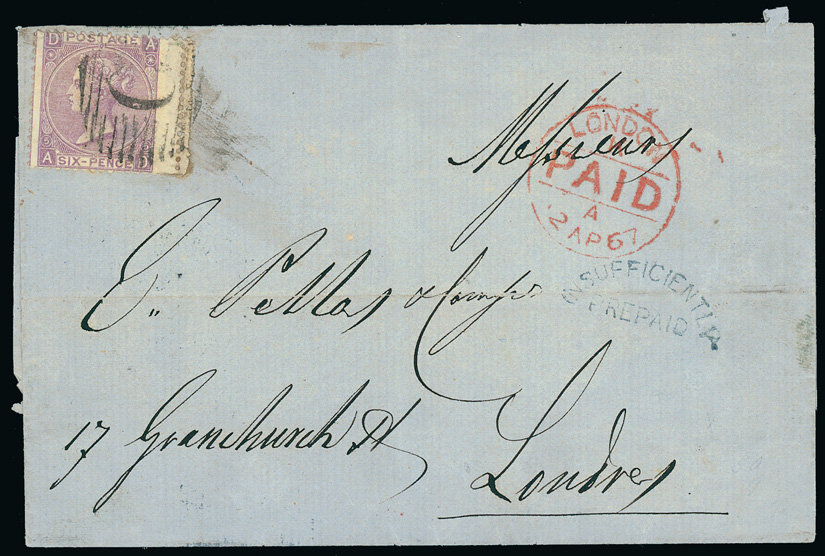 D POSTAGE A
A SIX-PENCE D
C
LONDON
PAID
A
2 AP 67
INSUFFICIENTLY
PREPAID
Messieurs
E. Pellas & Compe
17 Gracechurch St
Londres